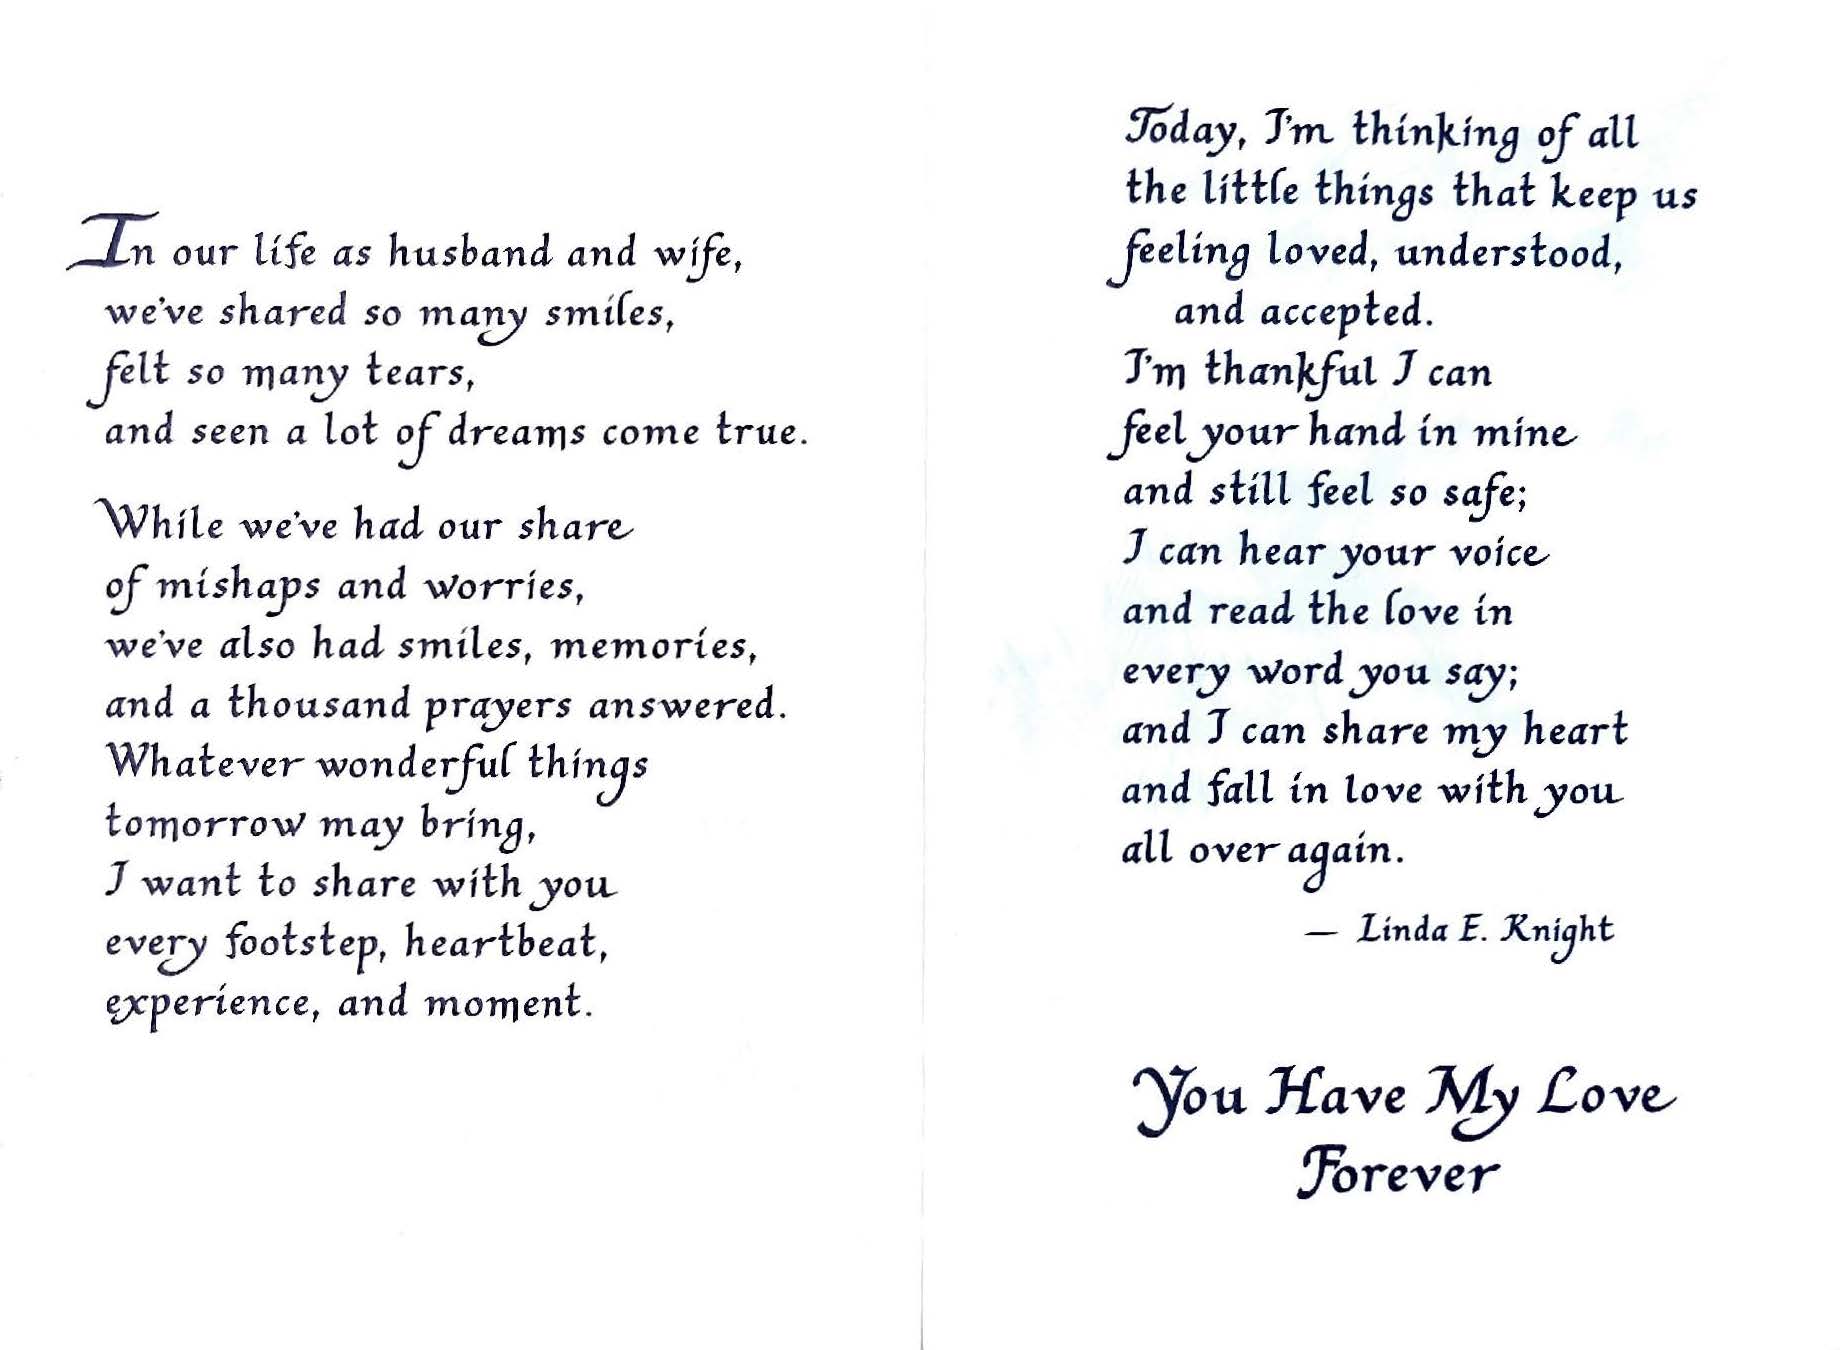 In our life as husband and wife,
we've shared so many smiles,
felt so many tears,
and seen a lot of dreams come true.
While we've had our share
of mishaps and worries,
we've also had smiles, memories,
and a thousand prayers answered.
Whatever wonderful things
tomorrow may bring,
I want to share with you
every footstep, heartbeat,
experience, and moment.
Today, I'm thinking of all
the little things that keep us
feeling loved, understood,
and accepted.
I'm thankful I can
feel your hand in mine
and still feel so safe;
I can hear your voice
and read the love in
every word you say;
and I can share my heart
and fall in love with you
all over again.
— Linda E. Knight
You Have My Love
Forever